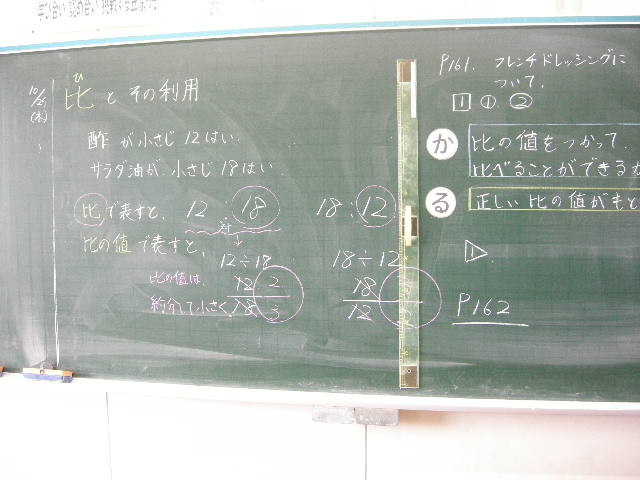 10/25
(木)
ひ
比とその利用
酢が小さじ12はい
サラダ油が、小さじ18はい
比で表すと、 12:18 18:12
対
比の値で表すと、
12÷18 18÷12
比の値は
約分して小さく
12 2
18 3
18
12
P161. フレンチドレッシングに
ついて、
1 ① ②
か 比の値をつかって、
比べることができる
る 正しい比の値がもと
1
P162